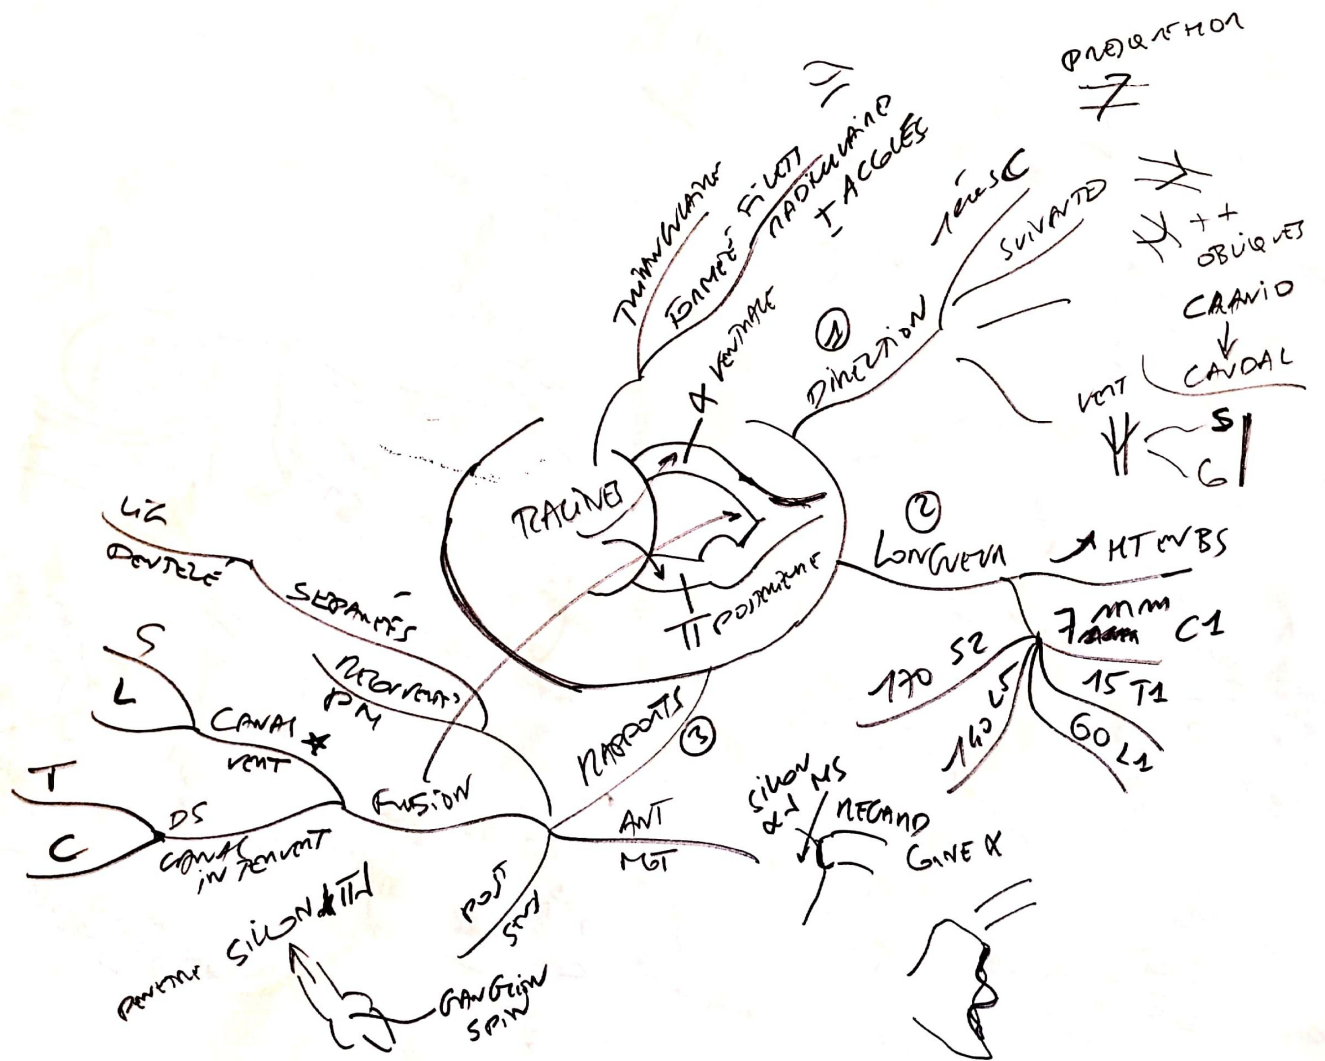 RACINES
α VENTRALE
Π POSTERIEURE
TRIANGULAIRE
FORMEE FILETS
RADICULAIRES
± ACCOLÉS
①
DIRECTION
1ères C
SUIVANTES
PRESQUE HOR
++
OBLIQUES
CRANIO
↓
CAUDAL
VERT
S
G
②
LONGUEUR
↗ HT EN BS
7 mm C1
15 T1
60 L1
140 L5
170 S2
③
RAPPORTS
ANT
MOT
SILLON
αL MS
REGARD
CORNE α
POST
SENS
GANGLION
SPIN
PENETRE SILLON ΠL
FUSION
CANAL
VERT
S
L
DS
CANAL
INTERVERT
T
C
RECOUVERTES
PM
SEPARÉS
LIG
DENTELÉ